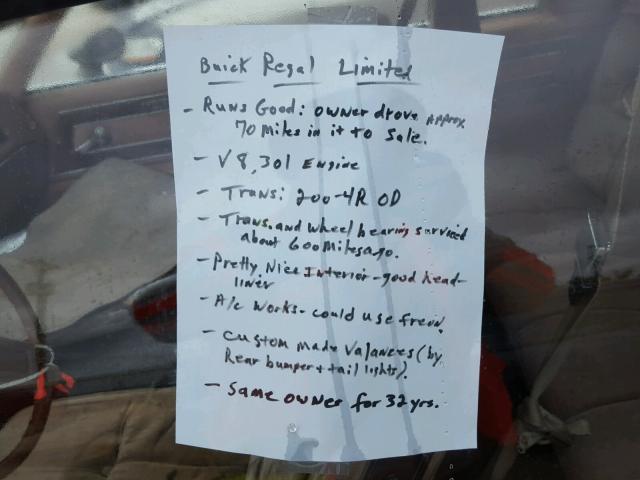 Buick Regal Limited
- Runs Good: owner drove Approx
70 miles in it to sale.
- V8, 301 Engine
- Trans: 200-4R OD
- Trans. and wheel bearing serviced
about 600 miles ago.
- Pretty Nice Interior - good head-
liner
- A/c works - could use freon
- Custom made Valances (by
Rear bumper + tail lights).
- Same owner for 32 yrs.